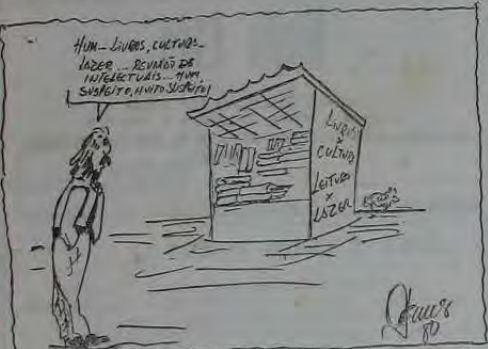 HUM - LIVROS, CULTURA -
LAZER ... REUNIÃO DE
INTELECTUAIS ... HUM,
SUSPEITO, MUITO SUSPEITO!
LIVROS
X
CULTURA
LEITURA
X
LAZER
80